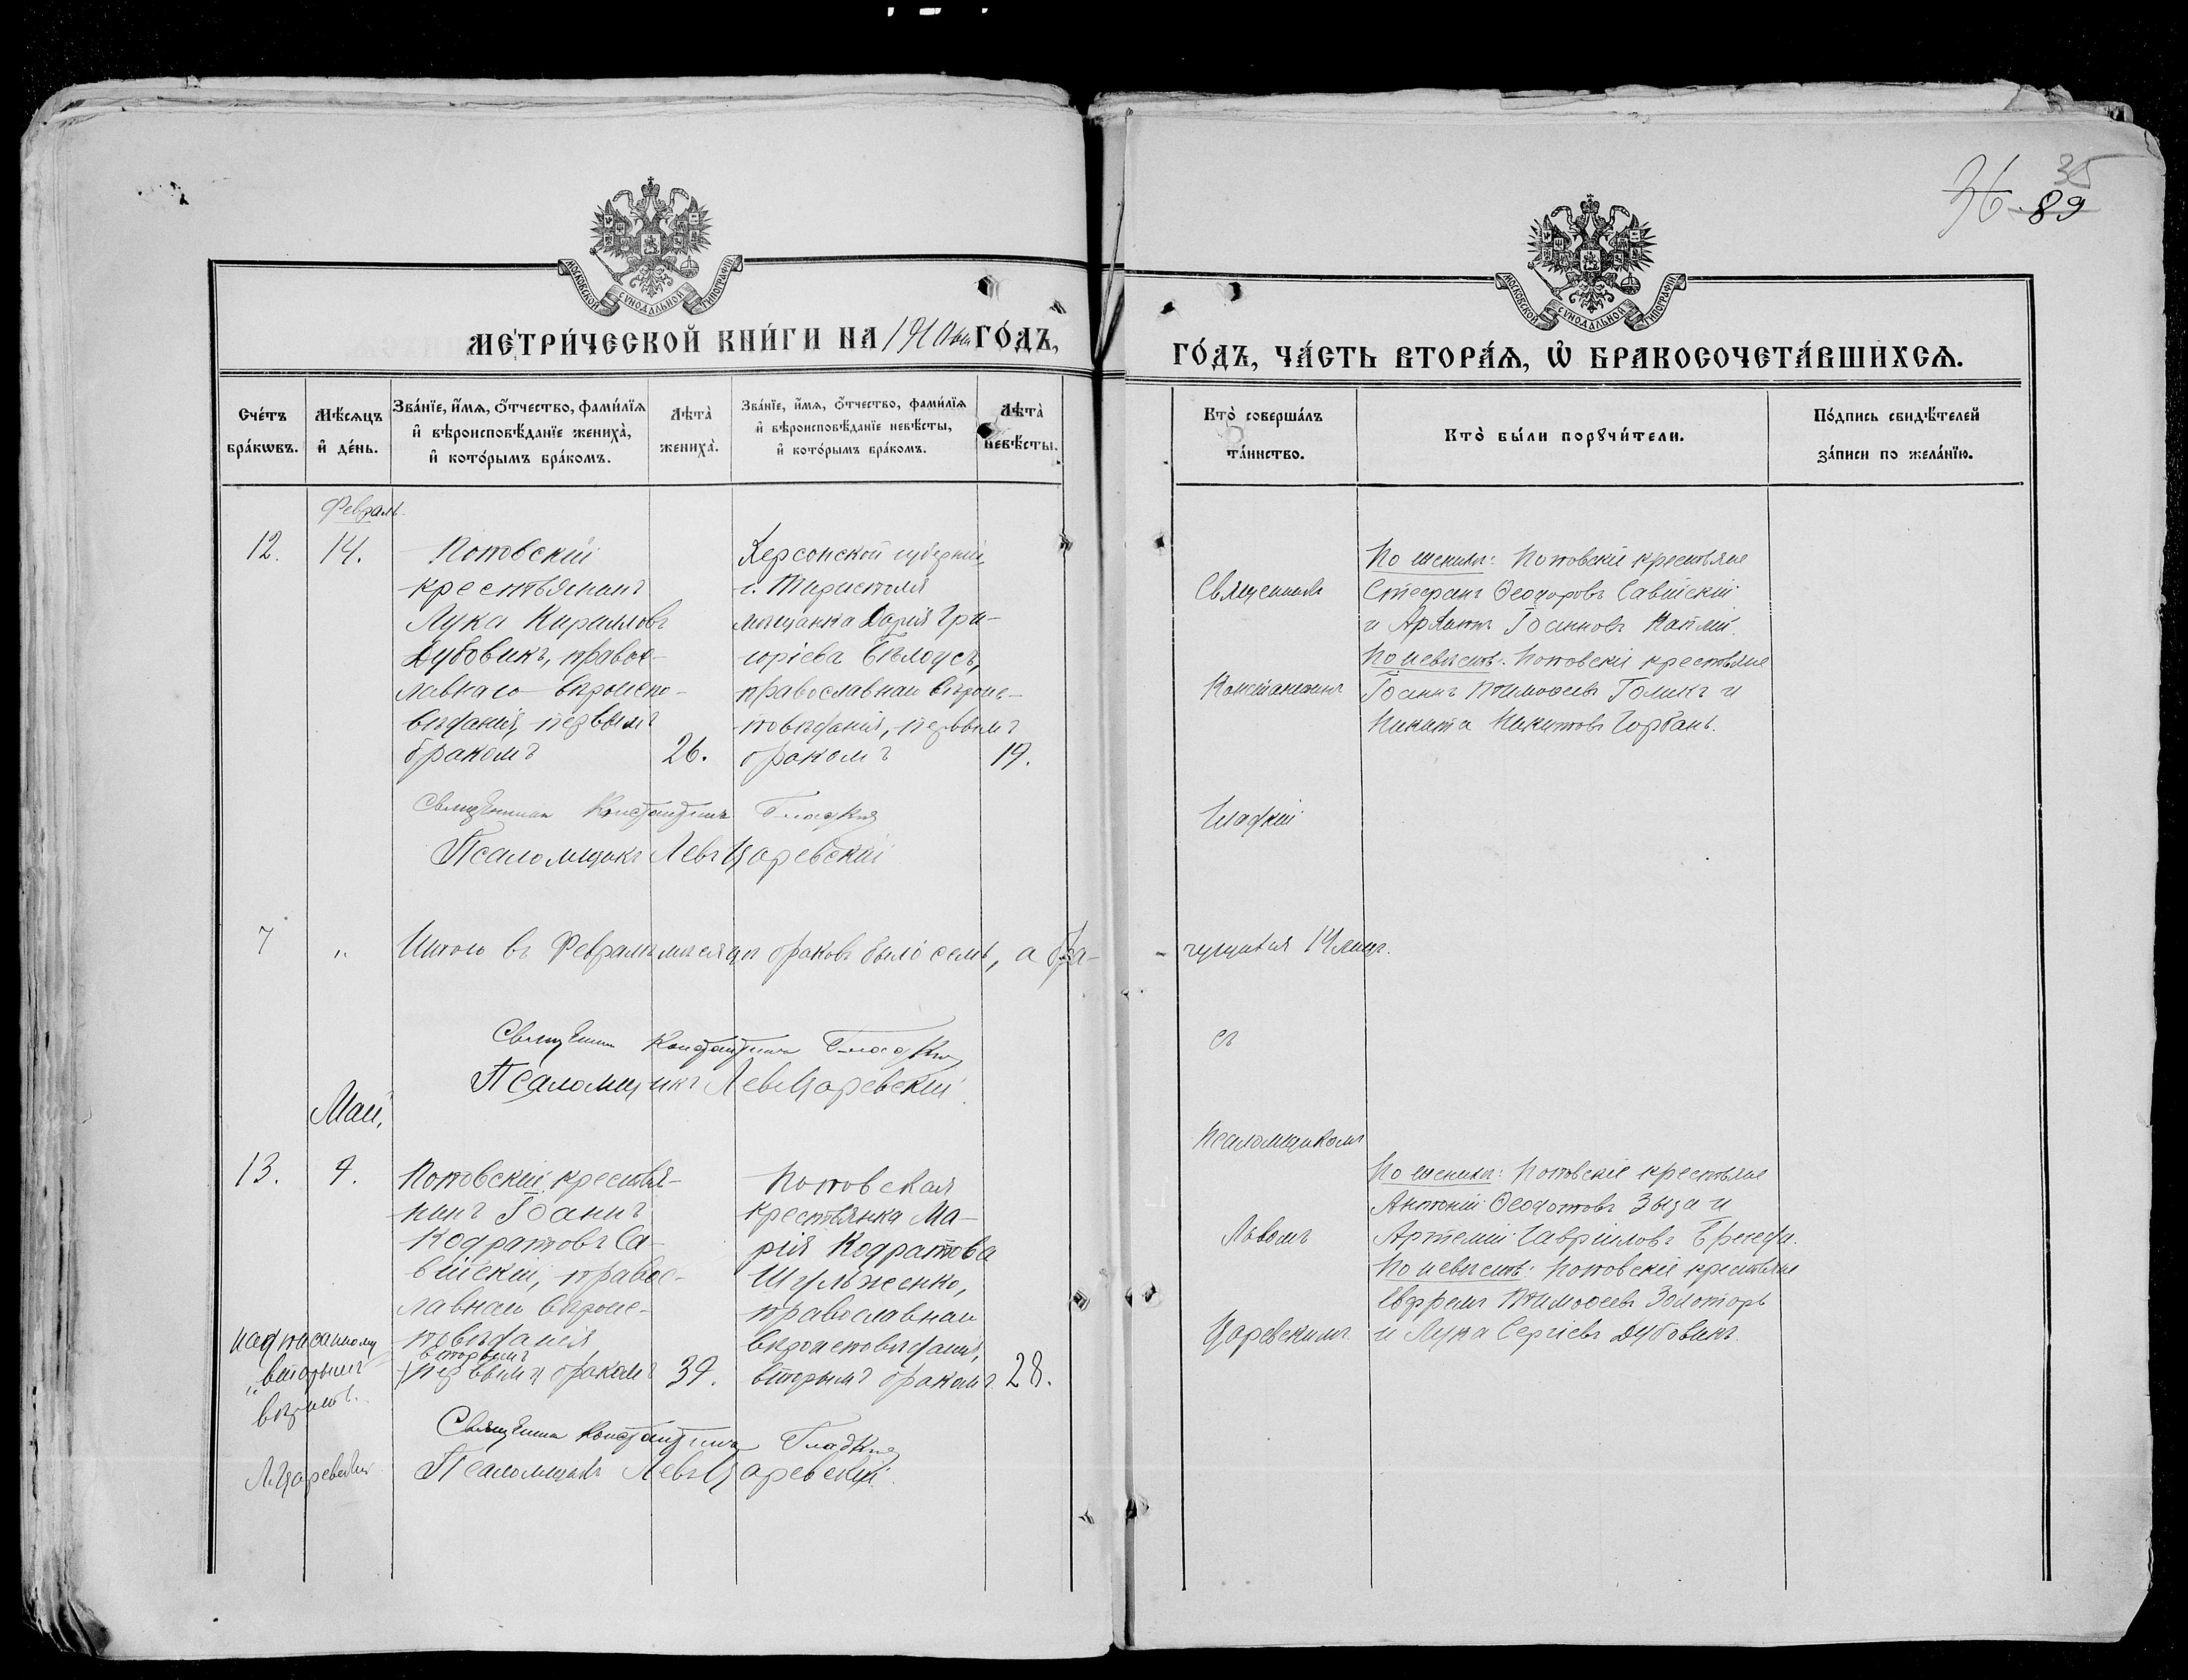 36 35
89
МОСКОВСКОЙ СѴНОДАЛЬНОЙ ТИПОГРАФІИ
МЕТРИ́ЧЕСКОЙ КНИ́ГИ НА 1910ый ГО́ДЪ,
Сче́тъ бра́кѡвъ.
Мѣ́сѧцъ и҆ де́нь.
Зва́нїе, и҆́мѧ, ѻ҆́тчество, фами́лїѧ и҆ вѣроисповѣ́данїе жениха̀, и҆ кото́рымъ бра́комъ.
Лѣта̀ жениха̀.
Зва́нїе, и҆́мѧ, ѻ҆́тчество, фами́лїѧ и҆ вѣроисповѣ́данїе невѣ́сты, и҆ кото́рымъ бра́комъ.
Лѣта̀ невѣ́сты.
Февраль.
12.
14.
Потовскій
крестьянинъ
Лука Кириловъ
Дубовикъ, правос-
лавнаго вѣроиспо-
вѣданія, первымъ
бракомъ
26.
Херсонской губерніи,
г. Тирасполя
мѣщанка Дарія Гри-
горіева Бѣлоусъ,
православнаго вѣроис-
повѣданія, первымъ
бракомъ
19.
Священникъ Константинъ Гладкій
Псаломщикъ Левъ Царевскій
7
"
Итого въ Февралѣ мѣсяцѣ браковъ было семь, а бра-
Священникъ Константинъ Гладкій
Псаломщикъ Левъ Царевскій.
Май,
13.
4.
Потовскій крестья-
нинъ Іоаннъ
Кодратовъ Са-
війскій, правос-
лавнаго вѣроис-
повѣданія
вторымъ
(первымъ) бракомъ
34.
Потовская
крестьянка Ма-
рія Кодратова
Шульженко,
православнаго
вѣроисповѣданія,
вторымъ бракомъ
28.
надписанному
"вторымъ"
вѣрить.
Л. Царевскій
Священникъ Константинъ Гладкій
Псаломщикъ Левъ Царевскій.
МОСКОВСКОЙ СѴНОДАЛЬНОЙ ТИПОГРАФІИ
ГО́ДЪ, ЧА́СТЬ ВТОРА́Ѧ, Ѡ҆ БРАКОСОЧЕТА́ВШИХСѦ.
Кто̀ соверша́лъ та́инство.
Кто̀ бы́ли порꙋчи́тели.
По́дпись свидѣ́телей за́писи по жела́нїю.
Священникъ
Константинъ
Гладкій
По женихѣ: Потовскіе крестьяне
Стефанъ Ѳеодоровъ Савійскій
и Іоанновъ
По невѣстѣ: Потовскіе крестьяне
Іоаннъ Тимоѳеевъ Голикъ и
Никита Никитовъ Горбань.
чущихся 14 лицъ.
съ
Псаломщикомъ
Львомъ
Царевскимъ
По женихѣ: Потовскіе крестьяне
Антоній Ѳеодотовъ Зыза и
Артемій Гавріиловъ
По невѣстѣ: Потовскіе крестьяне
Тимоѳеевъ Золотарь
и Лука Сергіевъ Дубовикъ.